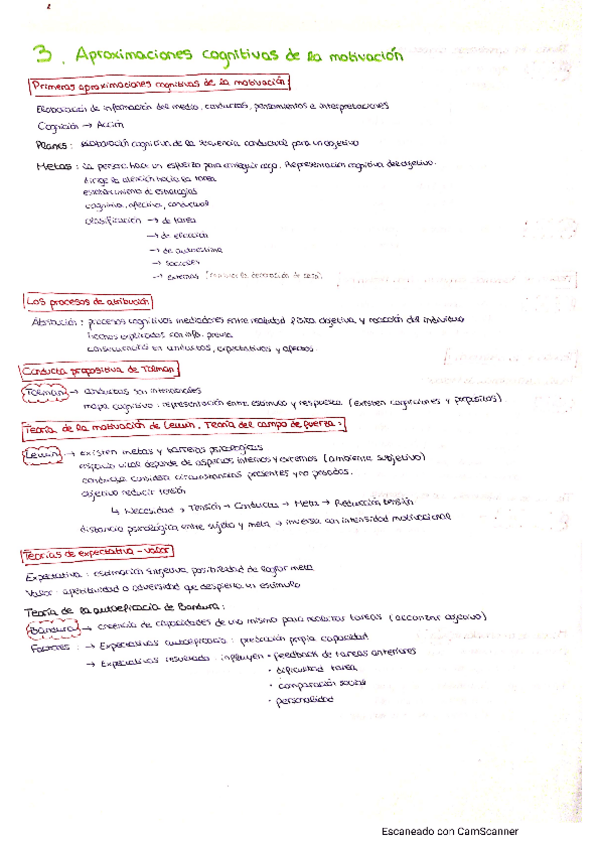 3. Aproximaciones cognitivas de la motivación
Primeras aproximaciones cognitivas de la motivación
Elaboración de información del medio, conductas, pensamientos e interpretaciones
Cognición → Acción
Planes : elaboración cognitiva de la secuencia conductual para un objetivo
Metas : la persona hace un esfuerzo para conseguir algo. Representación cognitiva del objetivo.
dirige la atención hacia la tarea
establecimiento de estrategias
cognitiva, afectiva, conductual
clasificación → de tarea
→ de ejecución
→ de autoestima
→ sociales
→ externas
Los procesos de atribución
Atribución : procesos cognitivos mediadores entre realidad física objetiva y reacción del individuo
hechos explicados con info. previa
consecuencias en conductas, expectativas y afectos
Conducta propositiva de Tolman
Tolman → conductas son intencionales
mapa cognitivo : representación entre estímulo y respuesta (existen cogniciones y propósitos)
Teoría de la motivación de Lewin, Teoría del campo de fuerza :
Lewin → existen metas y barreras psicológicas
espacio vital depende de aspectos internos y externos (ambiente subjetivo)
conducta considera circunstancias presentes y no pasadas.
objetivo reducir tensión
↳ Necesidad → Tensión → Conductas → Meta → Reducción tensión
distancia psicológica entre sujeto y meta → inversa con intensidad motivacional
Teorías de expectativa - valor
Expectativa : estimación subjetiva posibilidad de lograr meta
Valor : apetibilidad o adversidad que despierta un estímulo
Teoría de la autoeficacia de Bandura :
Bandura → creencia de capacidades de uno mismo para realizar tareas (
Factores : → Expectativas autoeficacia : percepción propia capacidad
→ Expectativas resultado : influyen • feedback de tareas anteriores
• dificultad tarea
• comparación social
• personalidad
Escaneado con CamScanner